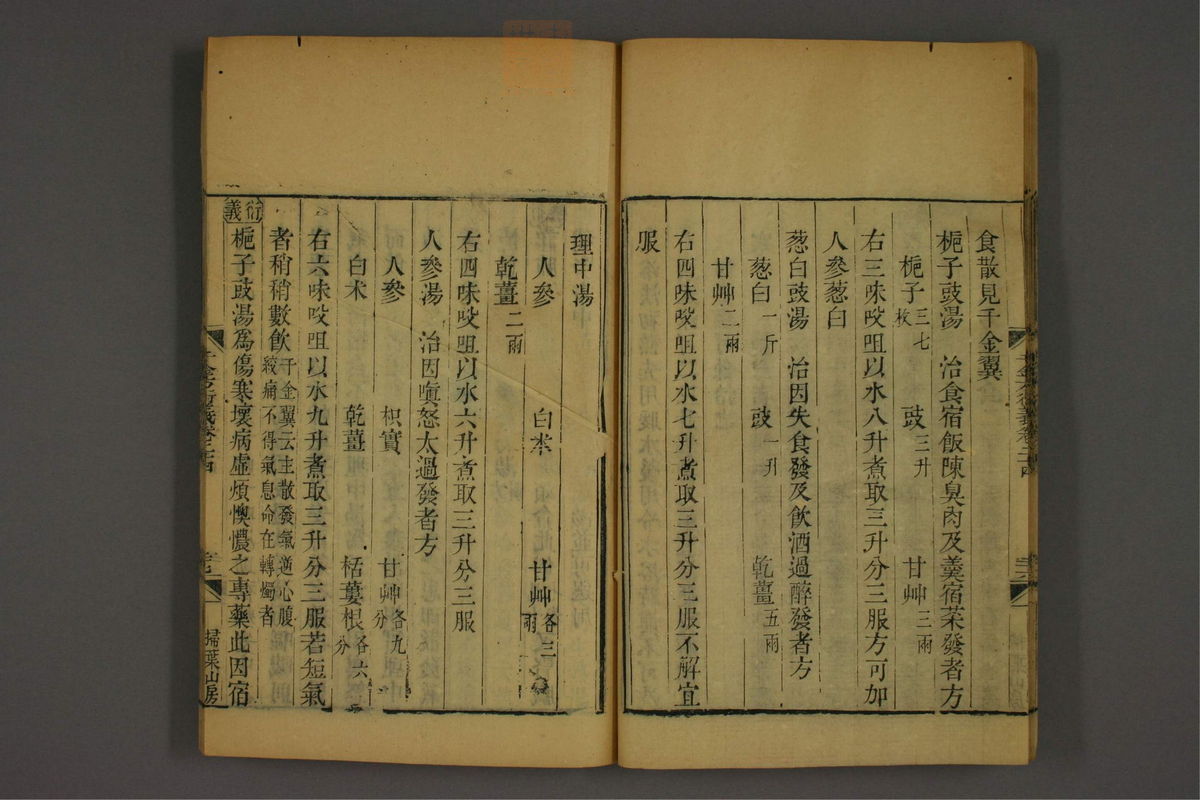 食散見千金翼
梔子豉湯　治食宿飯陳臭肉及羹宿菜發者方
梔子三七枚　豉三升　甘艸三兩
右三味㕮咀以水八升煮取三升分三服方可加
人參葱白
葱白豉湯　治因失食發及飲酒過醉發者方
葱白一斤　豉一升　乾薑五兩
甘艸二兩
右四味㕮咀以水七升煮取三升分三服不解宜
服
理中湯
人參　白朮　甘艸各三兩
乾薑二兩
右四味㕮咀以水六升煮取三升分三服
人參湯　治因嗔怒太過發者方
人參　枳實　甘艸各九分
白术　乾薑　栝蔞根各六分
右六味㕮咀以水九升煮取三升分三服若短氣
者稍稍數飲千金翼云主散發氣逆心腹絞痛不得氣息命在轉燭者
衍義
梔子豉湯爲傷寒壞病虛煩懊憹之專藥此因宿
千金方衍義卷二十四
掃葉山房